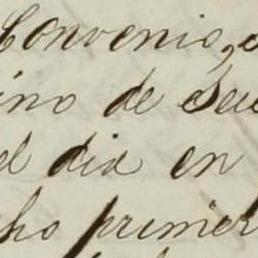 Convenio,
ino de
el dia en
cho primer